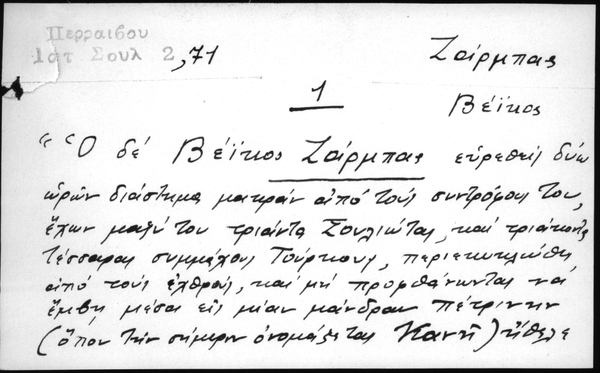 Περραιβου
Ιστ Σουλ 2,71
Ζάρμπας
1
Βέϊκος
"Ὁ δέ Βέϊκος Ζάρμπας εὑρεθείς δύω
ὡρῶν διάστημα μακράν ἀπό τούς συντρόφους του,
ἔχων μαζύ του τριάντα Σουλιώτας, καί τριάκοντα
τέσσαρας συμμάχους Τούρκους, περιεκυκλώθη
ἀπό τούς ἐχθρούς, καί μή προφθάνωντας νά
ἔμβῃ μέσα εἰς μίαν μάνδραν πέτρινην
(ὅπου τήν σήμερον ὀνομάζεται Κανῆ) ἤθελε